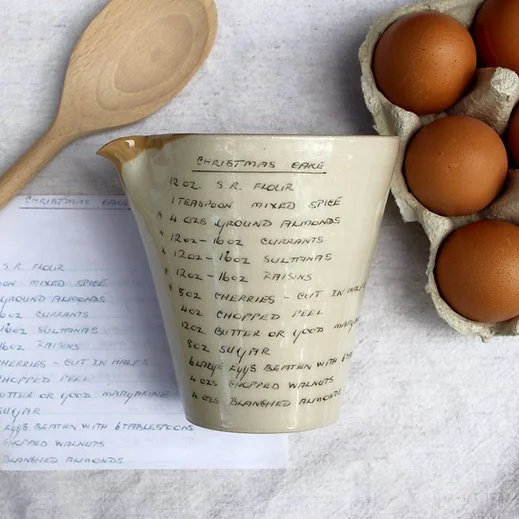 CHRISTMAS CAKE
12 OZ. S.R. FLOUR
1 TEASPOON MIXED SPICE
* 4 OZS GROUND ALMONDS
* 12OZ - 16 OZ CURRANTS
* 12OZ - 16OZ SULTANAS
* 12OZ - 16OZ RAISINS
* 8OZ CHERRIES - CUT IN HALFS
4OZ CHOPPED PEEL
12OZ BUTTER OR GOOD
8OZ SUGAR
6 LARGE EGGS BEATEN WITH
4 OZS CHOPPED WALNUTS
4 OZS BLANCHED ALMONDS
CHRISTMAS CAKE
S.R. FLOUR
MIXED SPICE
GROUND ALMONDS
16OZ CURRANTS
16OZ SULTANAS
16OZ RAISINS
CHERRIES - CUT IN HALFS
CHOPPED PEEL
BUTTER OR GOOD MARGARINE
SUGAR
EGGS BEATEN WITH 6 TABLESPOONS
CHOPPED WALNUTS
BLANCHED ALMONDS